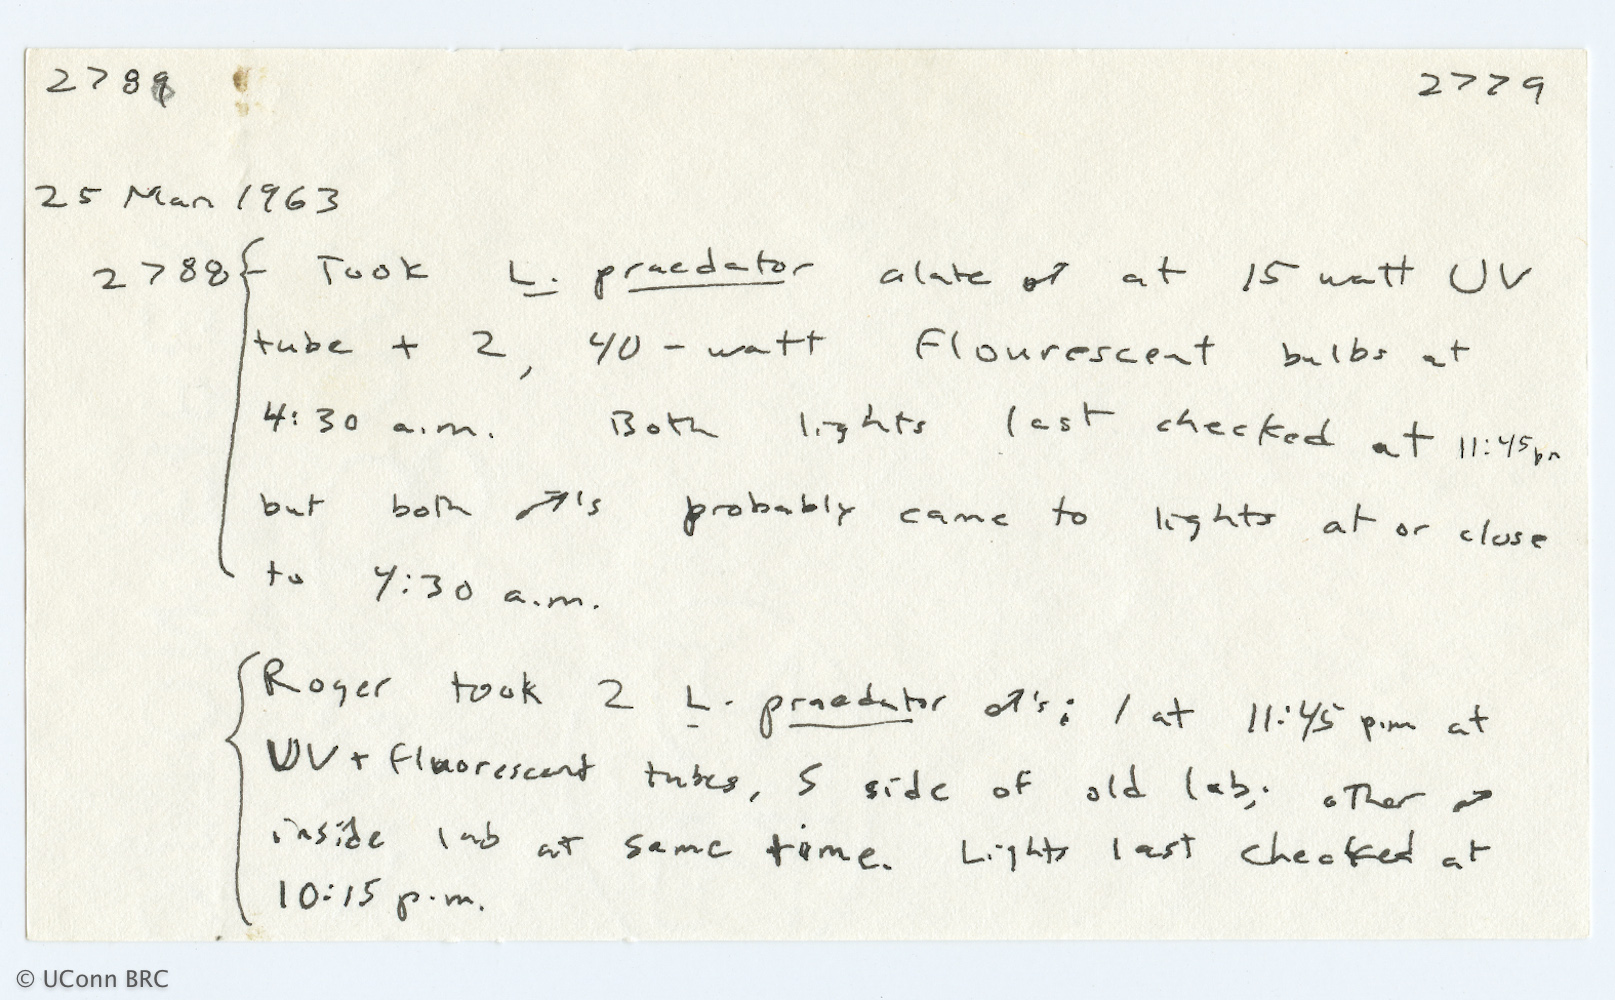 2789 2779
25 Mar 1963
2788 { Took L. praedator alate ♂ at 15 watt UV
tube + 2, 40-watt Flourescent bulbs at
4:30 a.m. Both lights last checked at 11:45 pm
but both ♂'s probably came to lights at or close
to 4:30 a.m.
{ Roger took 2 L. praedator ♂'s; 1 at 11:45 p.m at
UV + fluorescent tubes, S side of old lab; other ♂
inside lab at same time. Lights last checked at
10:15 p.m.
© UConn BRC